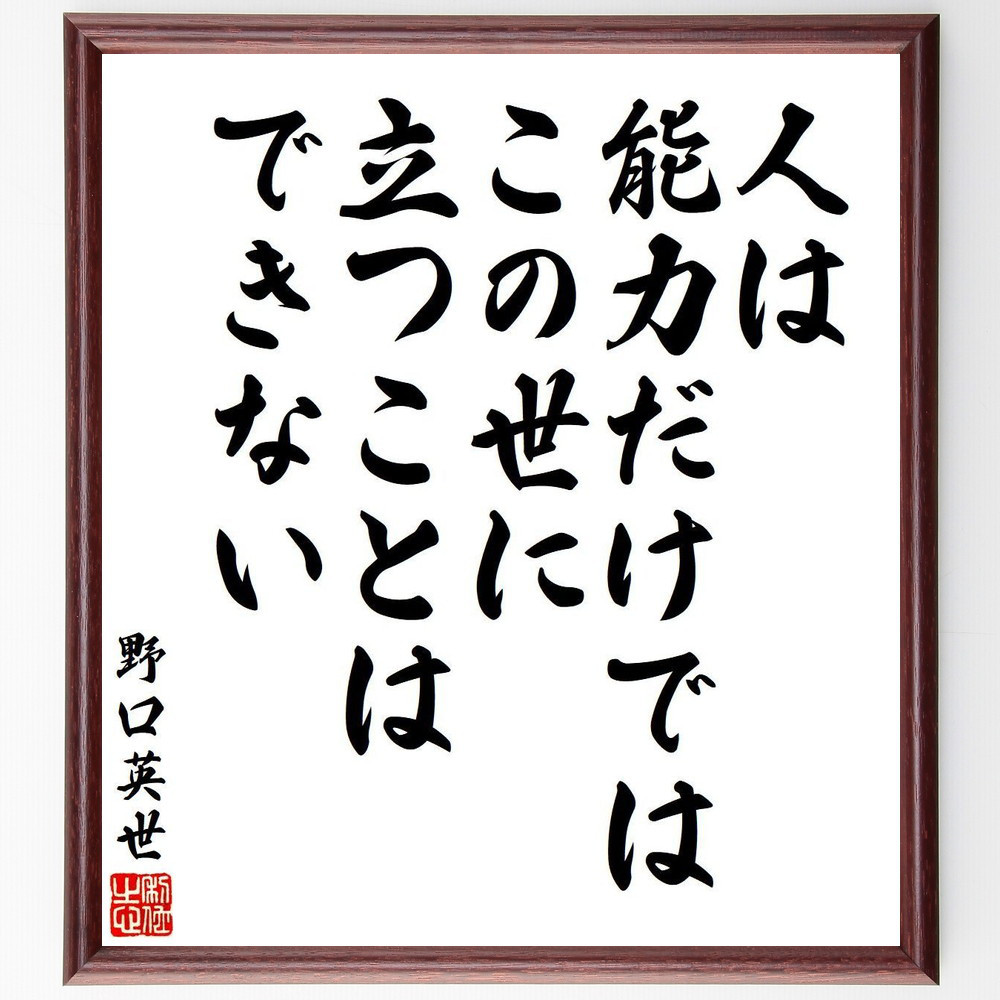 人は
能力だけでは
この世に
立つことは
できない
野口英世